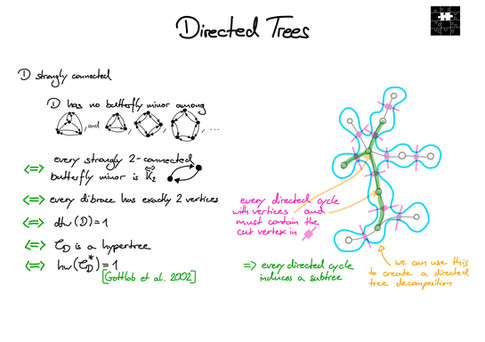 Directed Trees
D strongly connected
D has no butterfly minor among
, and , , , ...
<=> every strongly 2-connected
butterfly minor is K₂
<=> every dibrace has exactly 2 vertices
<=> dtw(D)=1
<=> C_D is a hypertree
<=> hw(C_D*)=1
[Gottlob et al. 2002]
every directed cycle
with vertices and
must contain the
cut vertex in
=> every directed cycle
induces a subtree
we can use this
to create a directed
tree decomposition